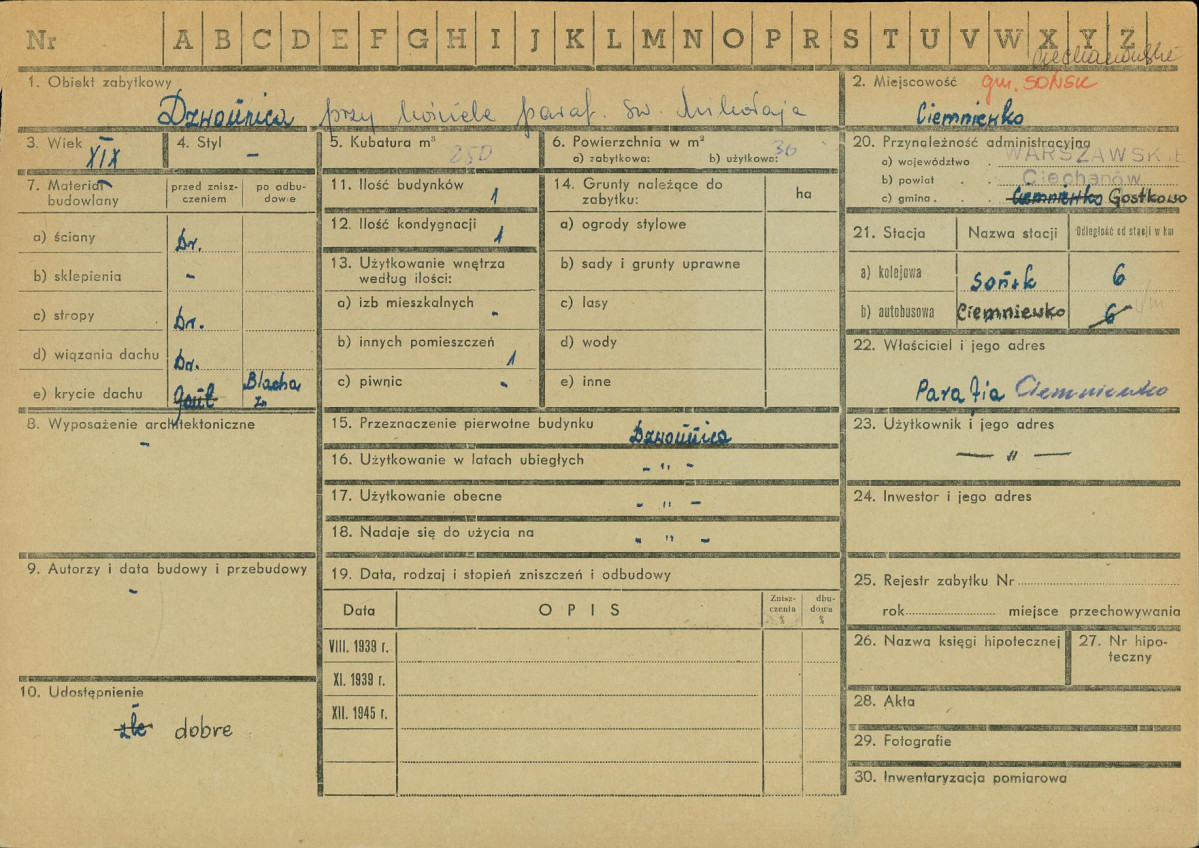 Nr A B C D E F G H I J K L M N O P R S T U V W X Y Z
ciechanowskie
1. Obiekt zabytkowy
Dzwonnica przy kościele paraf. św. Mikołaja
2. Miejscowość gm. SOŃSK
Ciemniewko
3. Wiek
XIX
4. Styl
-
5. Kubatura m³
250
6. Powierzchnia w m²
a) zabytkowa: b) użytkowa: 36
20. Przynależność administracyjna
a) województwo . WARSZAWSKIE
b) powiat . . Ciechanów
c) gmina . . . Ciemniewko Gostkowo
7. Materiał budowlany
przed znisz-
czeniem
po odbu-
dowie
a) ściany Dr.
b) sklepienia -
c) stropy Dr.
d) wiązania dachu Dr.
e) krycie dachu Gont Blacha
zn
11. Ilość budynków 1
12. Ilość kondygnacji 1
13. Użytkowanie wnętrza
według ilości:
a) izb mieszkalnych -
b) innych pomieszczeń 1
c) piwnic -
14. Grunty należące do
zabytku:
ha
a) ogrody stylowe
b) sady i grunty uprawne
c) lasy
d) wody
e) inne
21. Stacja Nazwa stacji Odległość od stacji w km
a) kolejowa Sońsk 6
b) autobusowa Ciemniewko 6
22. Właściciel i jego adres
Parafia Ciemniewko
8. Wyposażenie architektoniczne
-
15. Przeznaczenie pierwotne budynku Dzwonnica
16. Użytkowanie w latach ubiegłych - " -
17. Użytkowanie obecne - " -
18. Nadaje się do użycia na - " -
23. Użytkownik i jego adres
— " —
24. Inwestor i jego adres
9. Autorzy i data budowy i przebudowy
-
19. Data, rodzaj i stopień zniszczeń i odbudowy
Data OPIS
Znisz-
czenia
%
dbu-
dowa
%
VIII. 1939 r.
XI. 1939 r.
XII. 1945 r.
25. Rejestr zabytku Nr
rok miejsce przechowywania
26. Nazwa księgi hipotecznej
27. Nr hipo-
teczny
10. Udostępnienie
złe dobre
28. Akta
29. Fotografie
30. Inwentaryzacja pomiarowa